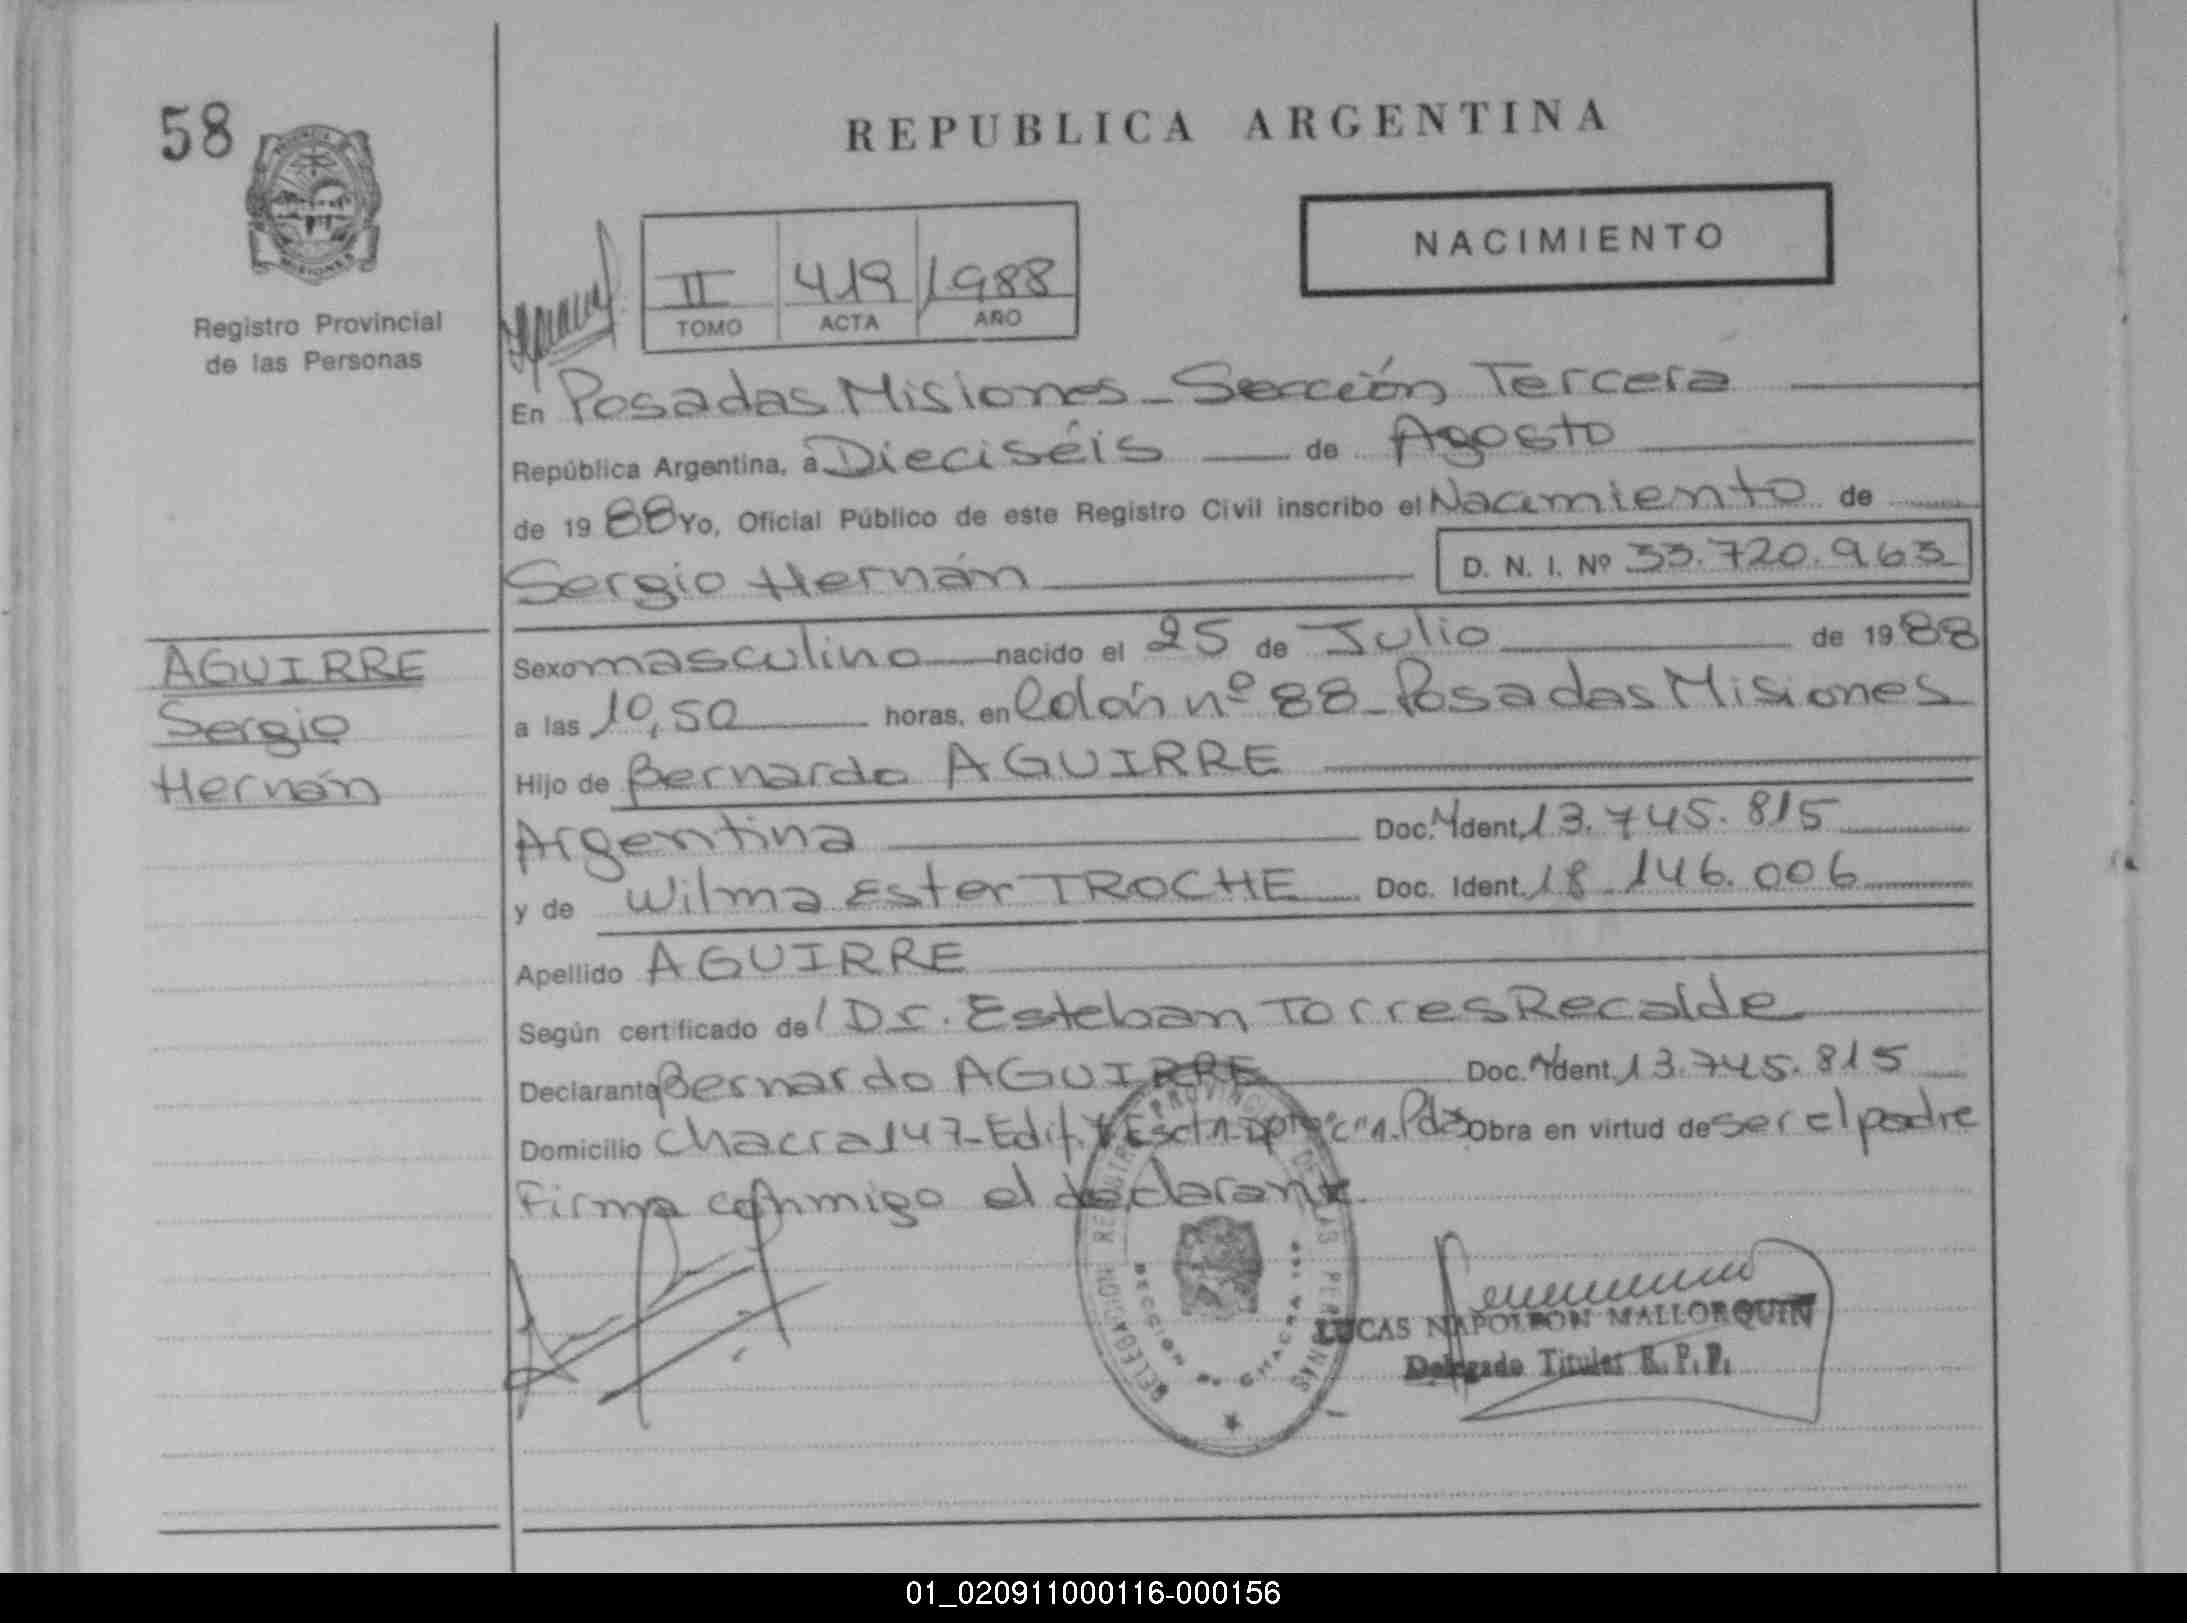 58
REPUBLICA ARGENTINA
NACIMIENTO
MISIONES
Registro Provincial
de las Personas
II 419 1988
TOMO ACTA AÑO
En Posadas Misiones - Sección Tercera
República Argentina, a Dieciséis de Agosto
de 1988 Yo, Oficial Público de este Registro Civil inscribo el Nacimiento de
Sergio Hernán D. N. I. Nº 33.720.963
AGUIRRE
Sergio
Hernán
Sexo masculino nacido el 25 de Julio de 1988
a las 10,50 horas, en Colón nº 88 - Posadas Misiones
Hijo de Bernardo AGUIRRE
Argentina Doc. Ident. 13.745.815
y de Wilma Ester TROCHE Doc. Ident. 18.146.006
Apellido AGUIRRE
Según certificado del Dr. Esteban Torres Recalde
Declarante Bernardo AGUIRRE Doc. Ident. 13.745.815
Domicilio Chacra 147 - Edif. Esc. 1 - Dpto "C" 1. Pdas Obra en virtud de ser el padre
Firma conmigo el declarante
REGISTRO PROVINCIAL DE LAS PERSONAS
LUCAS NAPOLEON MALLORQUIN
Delegado Titular R. P. P.
01_020911000116-000156